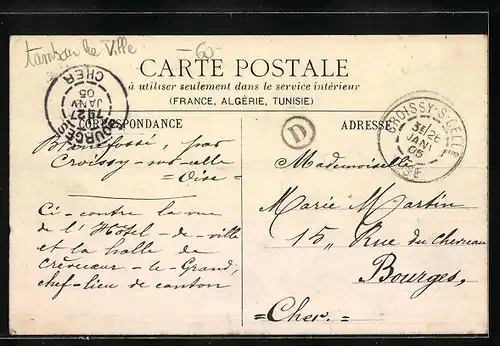 tambour de Ville
-60-
CARTE POSTALE
à utiliser seulement dans le service intérieur
(FRANCE, ALGÉRIE, TUNISIE)
CORRESPONDANCE
ADRESSE
BOURGES
27
JANV
05
CHER
CROISSY-S-CELLE
26
JANV
05
OISE
D
par
Croissy-sur-celle
= Oise =
Ci-contre la vue
de l'Hôtel-de-ville
et la halle de
Crèvecœur-le-Grand,
chef-lieu de canton
Mademoiselle
Marie Martin
15, Rue du Chevreau
Bourges,
= Cher. =